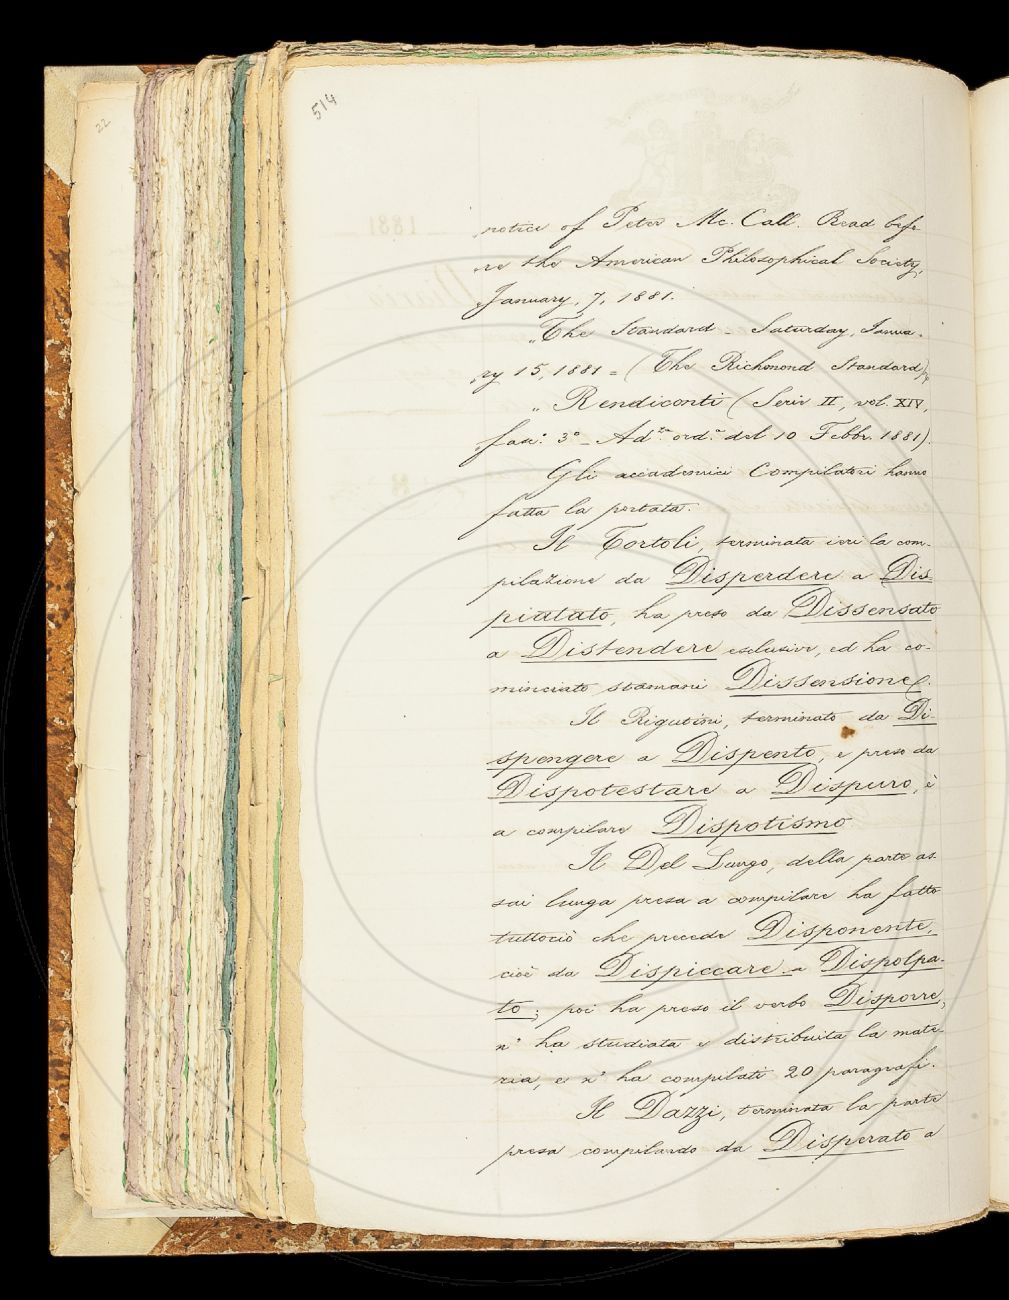 514
22
notice of Peter Mc. Call. Read befo
re the American Philosophical Society,
January, 7, 1881.
„The Standard - Saturday, Janua-
ry 15, 1881 = (The Richmond Standard),
„ Rendiconti (Serie II, vol. XIV,
fasc.º 3º - Ad.za ord.a del 10 Febbr. 1881).
Gli accademici Compilatori hanno
fatta la portata.
Il Tortoli, terminata ieri la com-
pilazione da Disperdere a Dis
pietato, ha preso da Dissensato
a Distendere esclusive, ed ha co-
minciato stamani Dissensione.
Il Rigutini, terminato da Di-
spengere a Dispento, e preso da
Dispotestare a Dispuro, è
a compilare Dispotismo
Il Del Lungo, della parte as-
sai lunga presa a compilare ha fatto
tuttociò che precede Disponente,
cioè da Dispiccare a Dispolpa-
to; poi ha preso il verbo Disporre,
n' ha studiata e distribuita la mate-
ria, e n' ha compilati 20 paragrafi.
Il Dazzi, terminata la parte
presa compilando da Disperato a